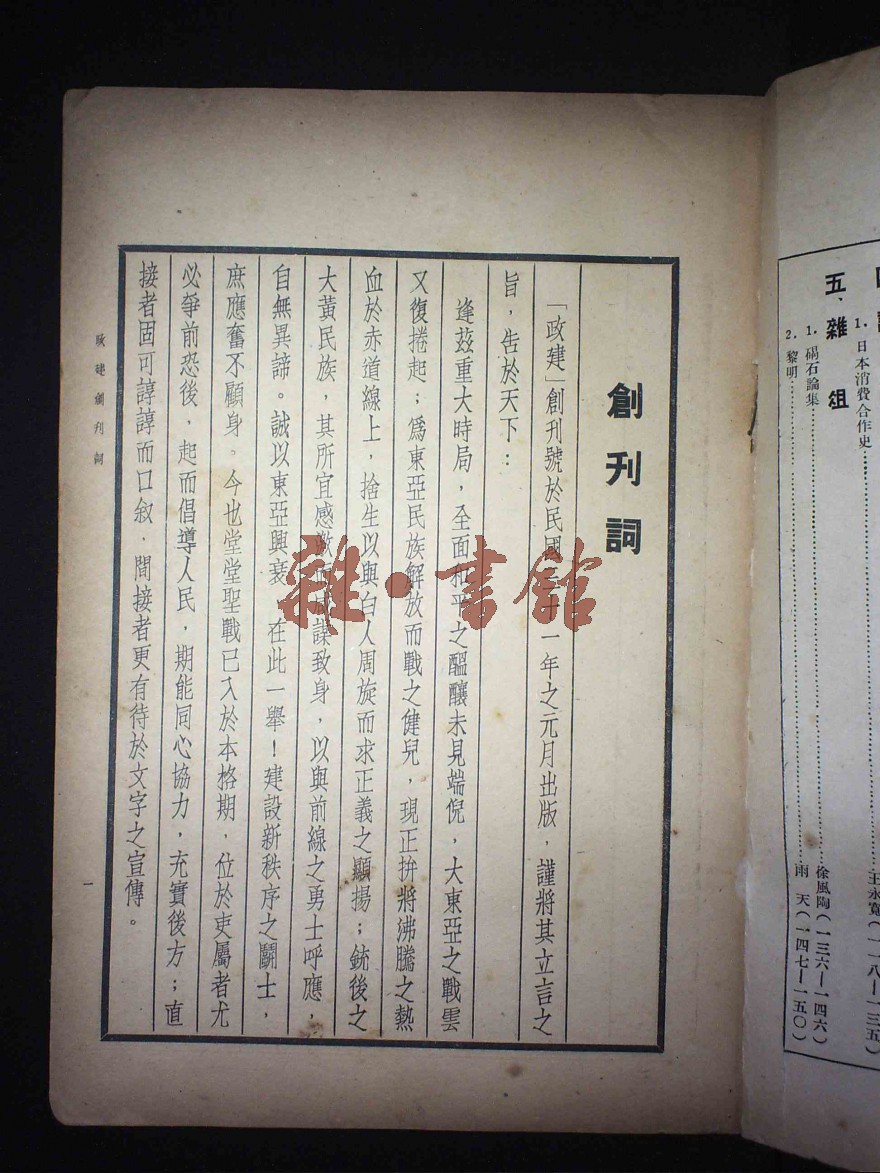 創刊詞
「政建」創刊號於民國 十一年之元月出版，謹將其立言之
旨，告於天下：
逢茲重大時局，全面和平之醞釀未見端倪，大東亞之戰雲
又復捲起；爲東亞民族解放而戰之健兒，現正拚將沸騰之熱
血於赤道線上，捨生以與白人周旋而求正義之顯揚；銃後之
大黃民族，其所宜感激 謀致身，以與前線之勇士呼應，
自無異諦。誠以東亞興衰 在此一舉！建設新秩序之鬭士，
庶應奮不顧身。今也堂堂聖戰已入於本格期，位於吏屬者尤
必爭前恐後，起而倡導人民，期能同心協力，充實後方；直
接者固可諄諄而口叙，間接者更有待於文字之宣傳。
政建創刊詞
一
雜·書館
1．日本消費合作史
王永寬（一一八—一三五）
五、雜俎
1．碣石論集 徐風陶（一三六—一四六）
2．黎明 雨天（一四七—一五〇）